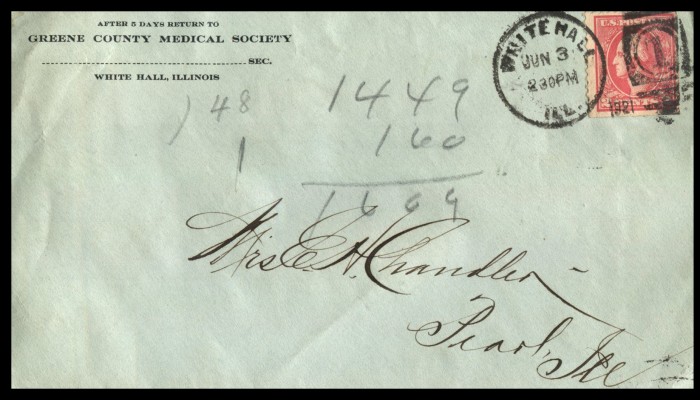 AFTER 5 DAYS RETURN TO
GREENE COUNTY MEDICAL SOCIETY
SEC.
WHITE HALL, ILLINOIS
WHITE HALL
JUN 3
230PM
ILL.
1921
U.S. POST
) 48
1
1449
160
1609
Mrs. C. H. Chandler
Pearl, Ill